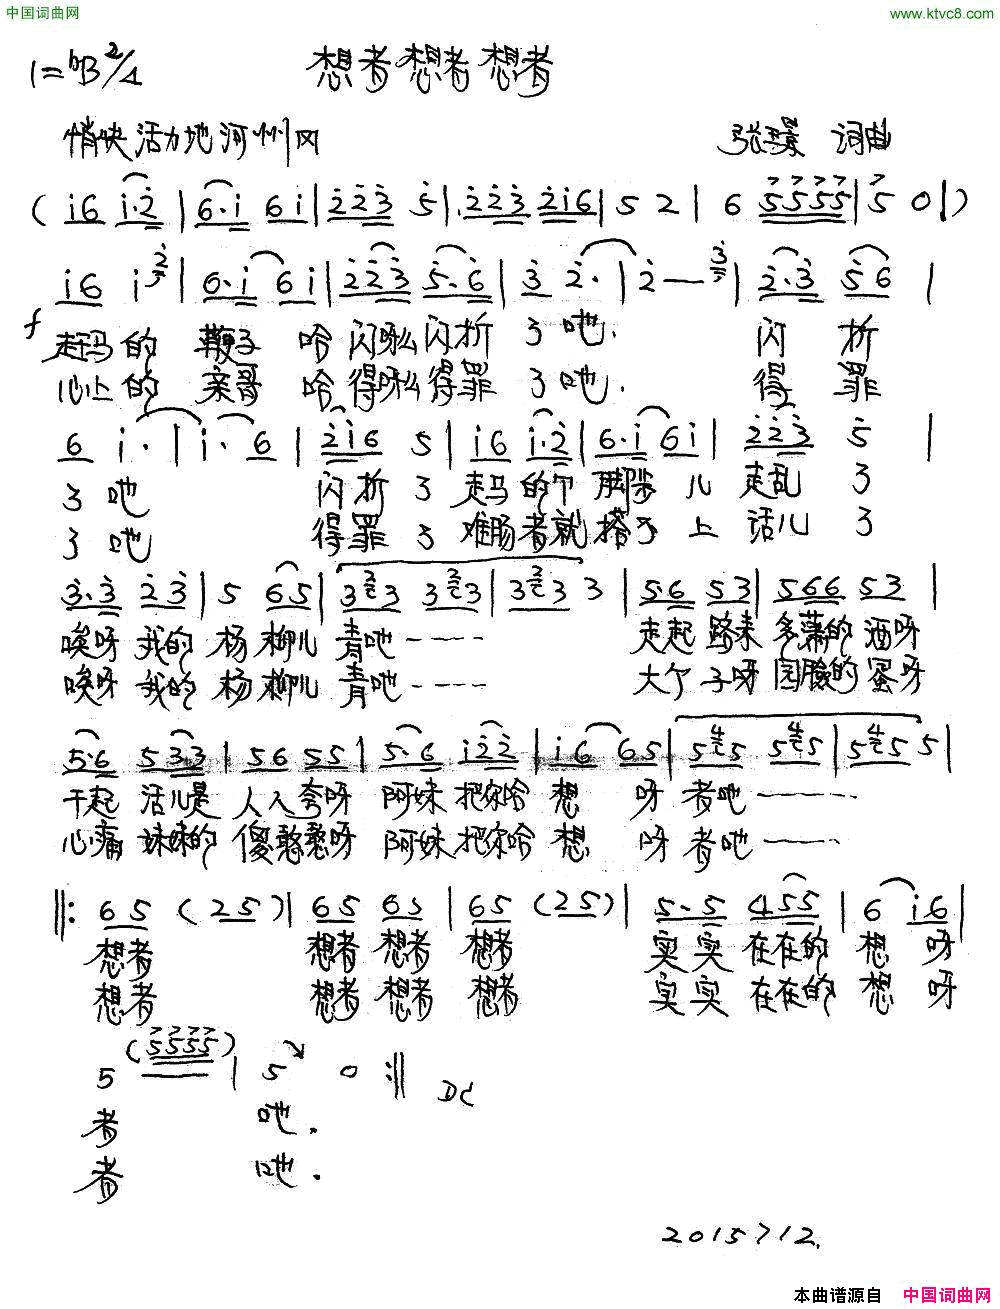 中国词曲网
www.ktvc8.com
1=♭B 2/4
想者想者想者
悄快活力地河州风
张璟 词曲
( i6 i·2 | 6·i 6i | 223 5 | 223 2i6 | 5 2 | 6 5555 | 5 0 | )
i6 i | 6·i 6i | 223 5·6 | 3 2· | 2 — | 2·3 56 |
f
走马的 鞭子 哈 闪呀么闪折 了吔. 闪 折
心上的 亲哥 哈 得呀么得罪 了吔. 得 罪
6 i· | i· 6 | 2i6 5 | i6 i·2 | 6·i 6i | 223 5 |
了 吔 闪 折 了 走马 的个 脚步 儿 走乱 了
了 吔 得 罪 了 难肠者就 搭不 上 话儿 了
3·3 23 | 5 65 | 3 3 3 3 | 3 3 3 | 56 53 | 566 53 |
唉呀 我的 杨 柳儿 青吔 ----
走起 路来 多蕩的 洒呀
唉呀 我的 杨 柳儿 青吔 ----
大个 子呀 园脸的 蛮呀
5·6 533 | 56 55 | 5·6 i22 | i6 65 | 5 5 5 5 | 5 5 5 |
干起 活儿是 人人夸呀 阿妹 把你哈 想 呀 者吔 ----
心痛 妹妹的 傻憨憨呀 阿妹 把你哈 想 呀 者吔 ----
‖: 65 (25) | 65 65 | 65 (25) | 5·5 455 | 6 i6 |
想者 想者 想者 想者 实实 在在的 想 呀
想者 想者 想者 想者 实实 在在的 想 呀
(5555)
5 | 5 0 :‖ DC
者 吔.
者 吔.
2015 7 12.
本曲谱源自 中国词曲网